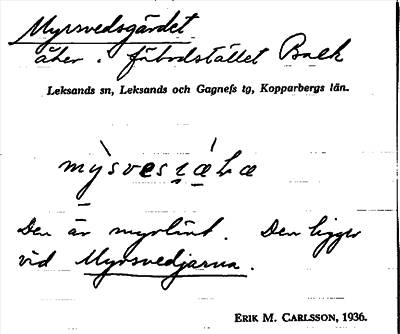 Myrsvedsgärdet
åker i fäbodstället Balk
Leksands sn, Leksands och Gagnefs tg, Kopparbergs län.
Den är myrlänt. Den ligger
vid Myrsvedjarna.
ERIK M. CARLSSON, 1936.